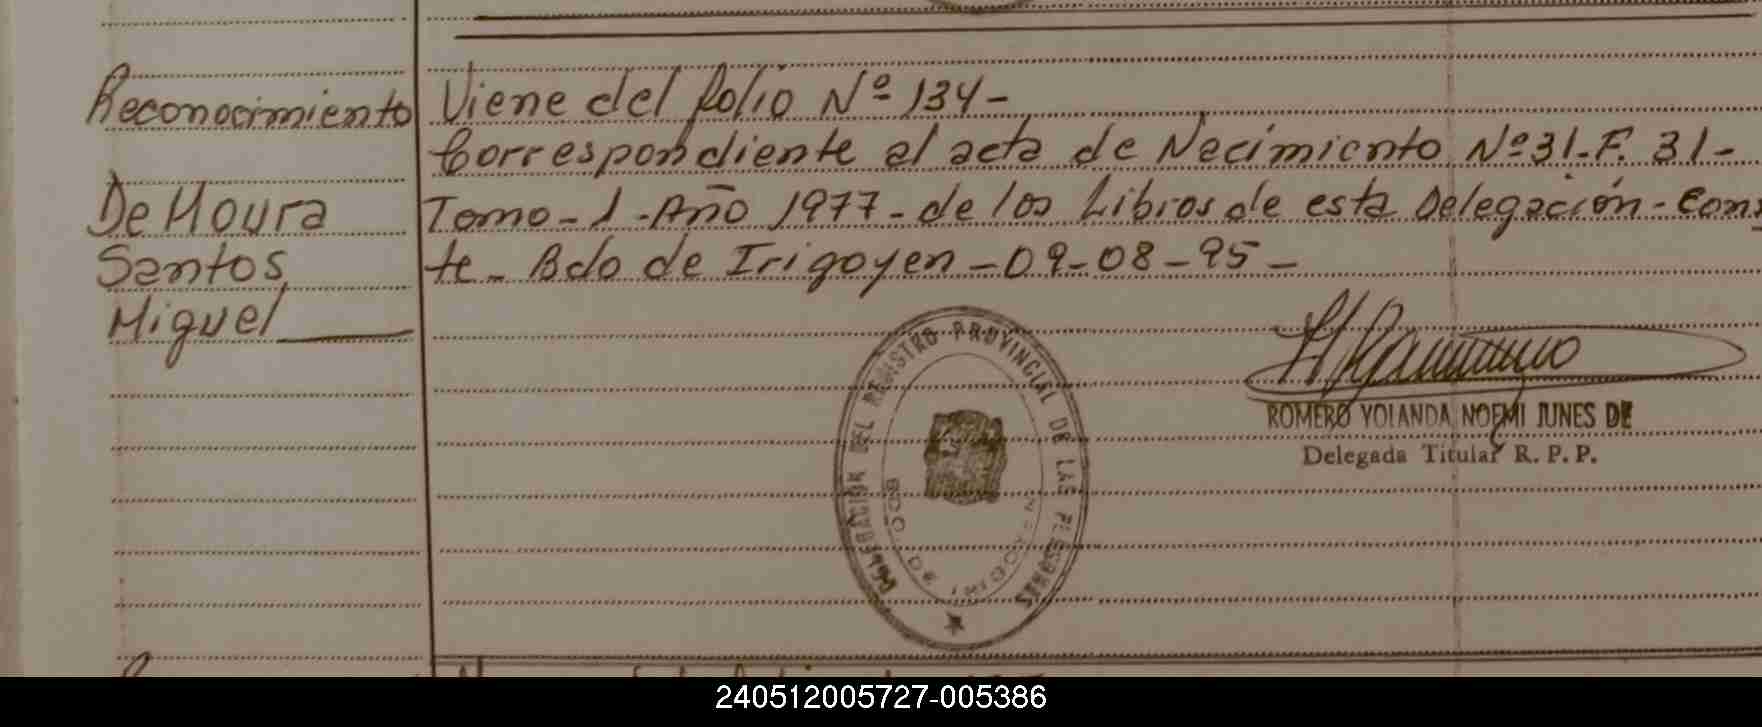 Reconocimiento
De Moura
Santos
Miguel
Viene del folio Nº 134-
Correspondiente al acta de Nacimiento Nº31-F. 31-
Tomo-1-Año 1977-de los Libros de esta Delegación-Cons
te- Bdo de Irigoyen-09-08-95-
DELEGACION DEL REGISTRO PROVINCIAL DE LAS PERSONAS
BDO. DE IRIGOYEN
ROMERO YOLANDA NOEMI JUNES DE
Delegada Titular R. P. P.
240512005727-005386